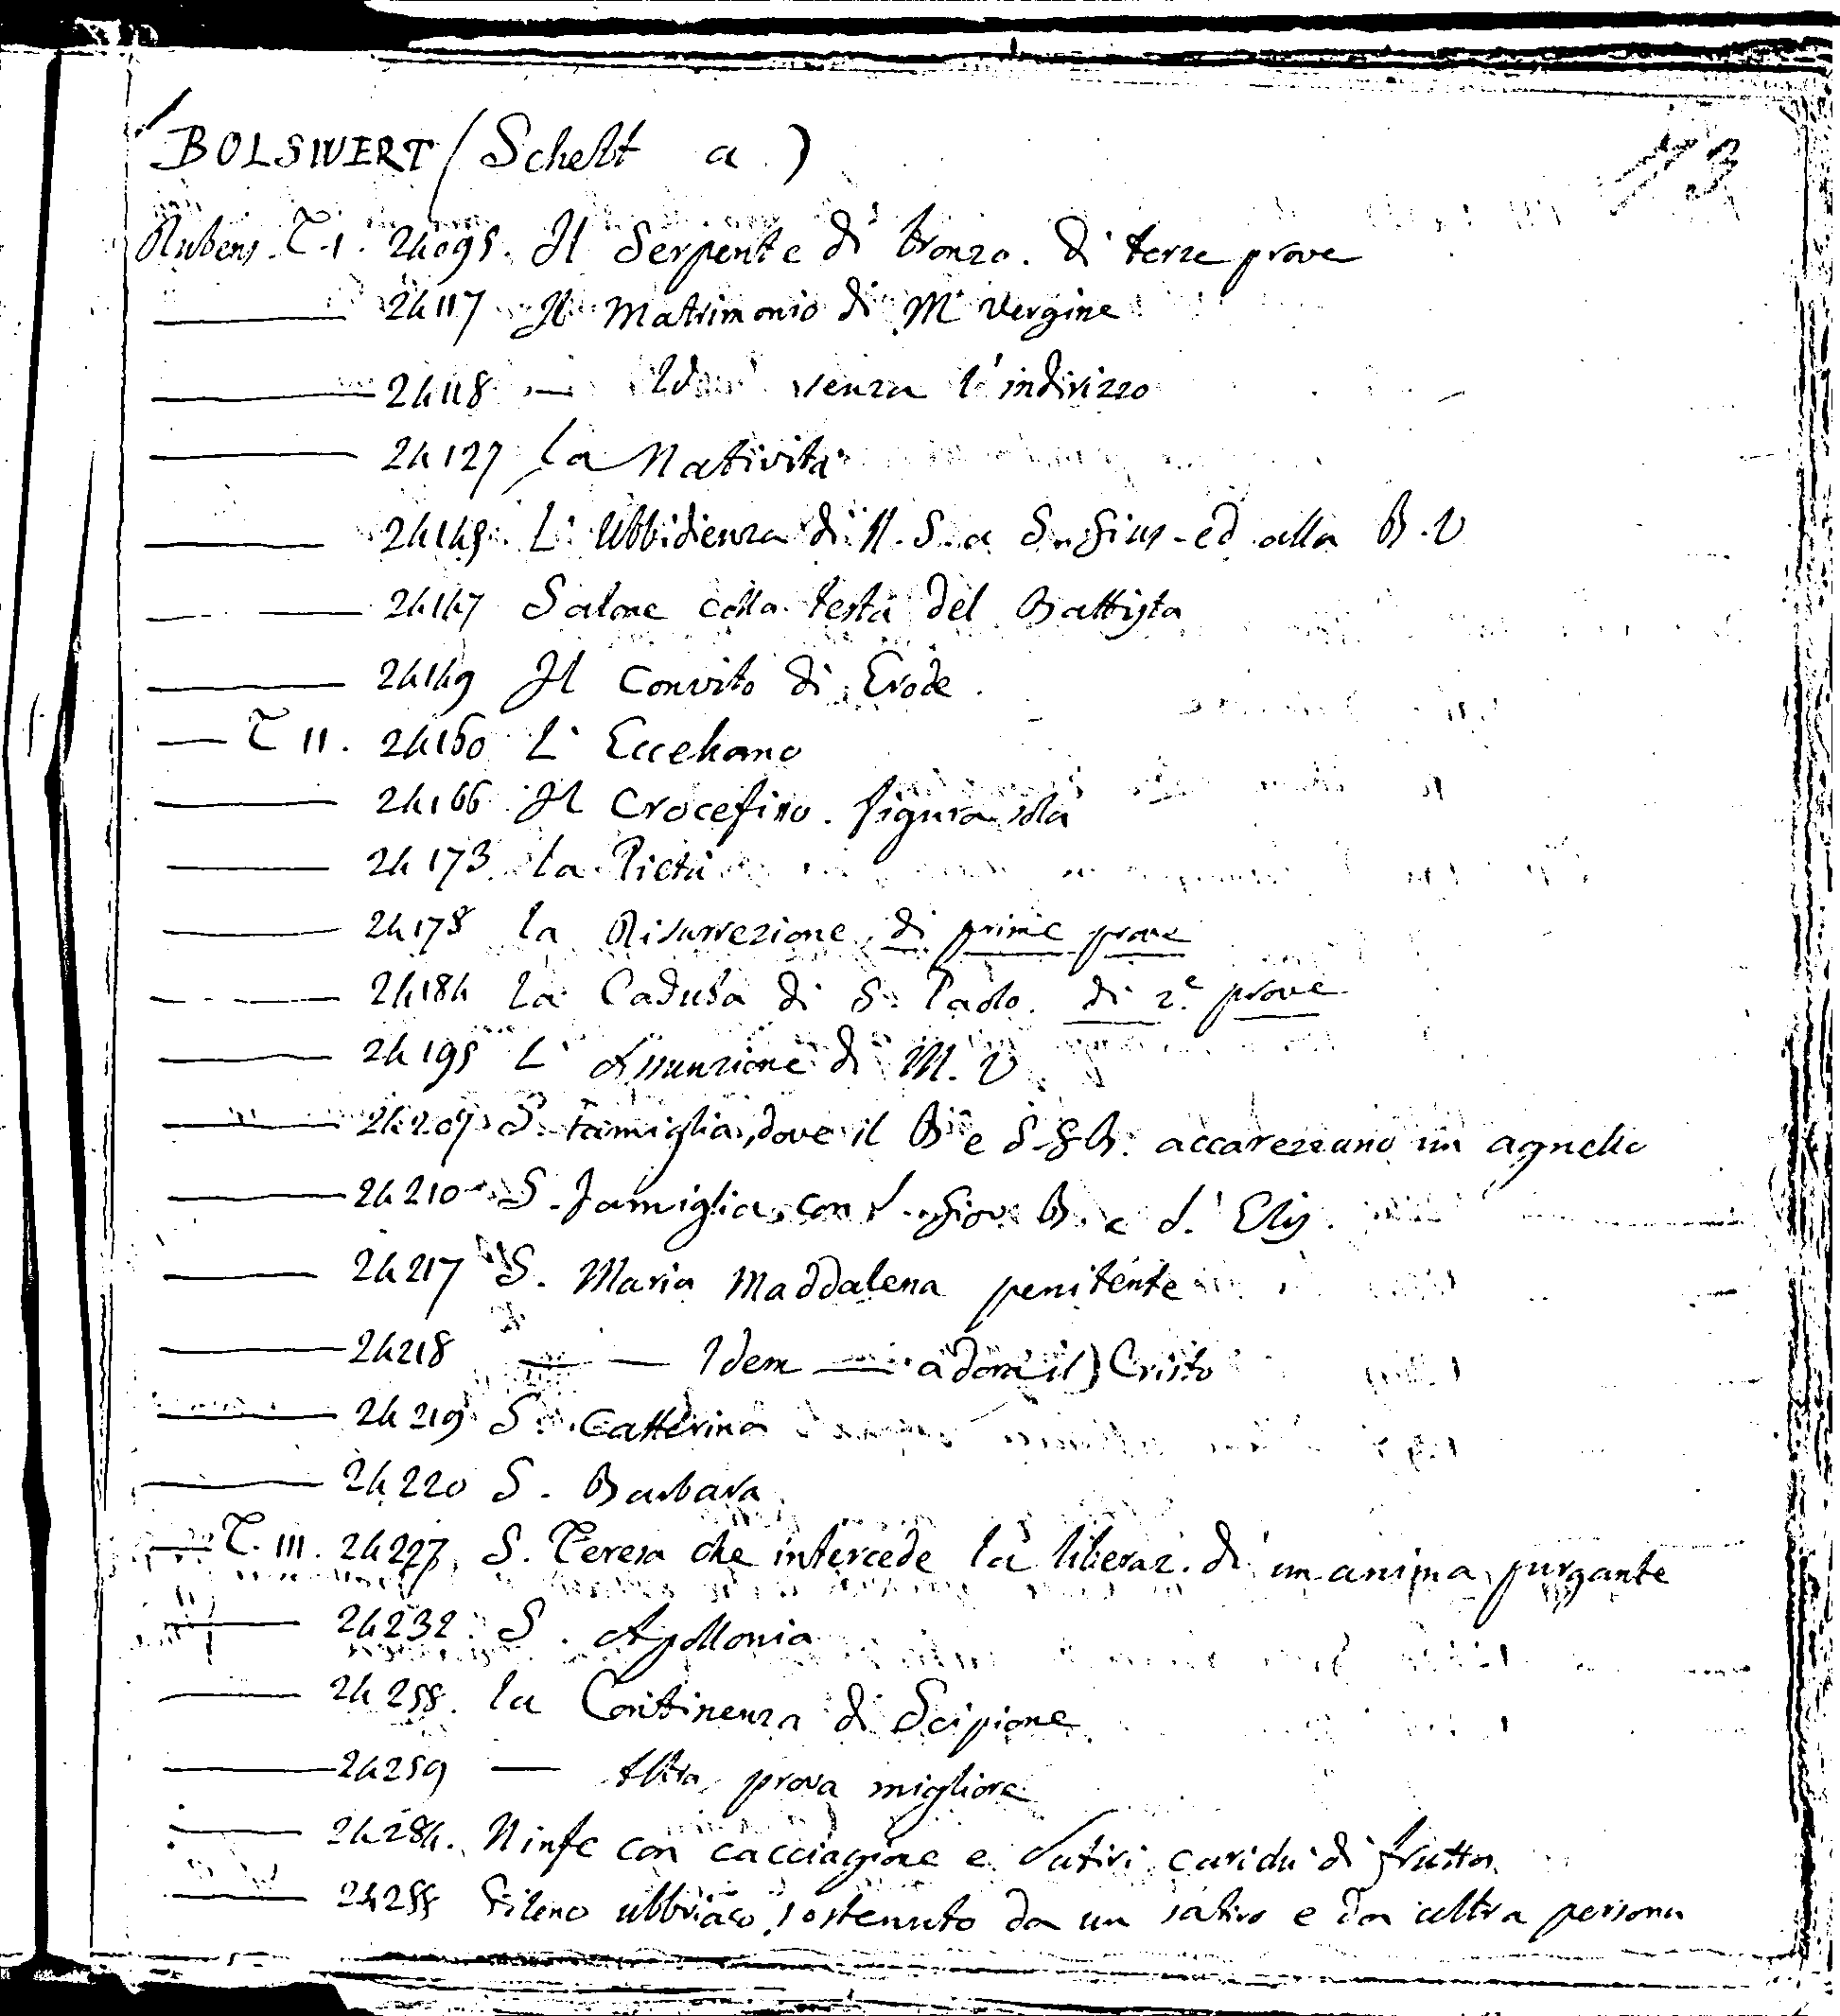 BOLSWERT (Schelt a )
73
Rubens. T. I. 24095. Il Serpente di bronzo. di terze prove
24117 Il Matrimonio di Mª Vergine
24118 — Id senza l'indirizzo
24127 la Natività
24145. L'Ubbidienza di N. S. a S. Gius. ed alla B. V
24147 Salome colla testa del Battista
24149 Il Convito di Erode.
— T II. 24160 L'Eccehomo
24166 Il Crocefisso. figura sola
24173 la Pietà
24178 la Risurrezione, di prime prove
24184 la Caduta di S. Paolo. di 2.e prove
24195 L'Assunzione di M. V
24207 S. Famiglia, dove il Bne e S. G B. accarezzano un agnello
24210 S. Famiglia, con S. Giov. B. e S. Elis.
24217 S. Maria Maddalena penitente
24218 — — Idem — adora il) Cristo
24219 S. Catterina
24220 S. Barbara
— T. III. 24227. S. Teresa che intercede la liberaz. di un anima purgante
24232. S. Apollonia
24258. la Continenza di Scipione
24259 — Altra prova migliore
24284. Ninfe con cacciagione e Satiri carichi di frutta
24288 Sileno ubbriaco, sostenuto da un satiro e da altra persona